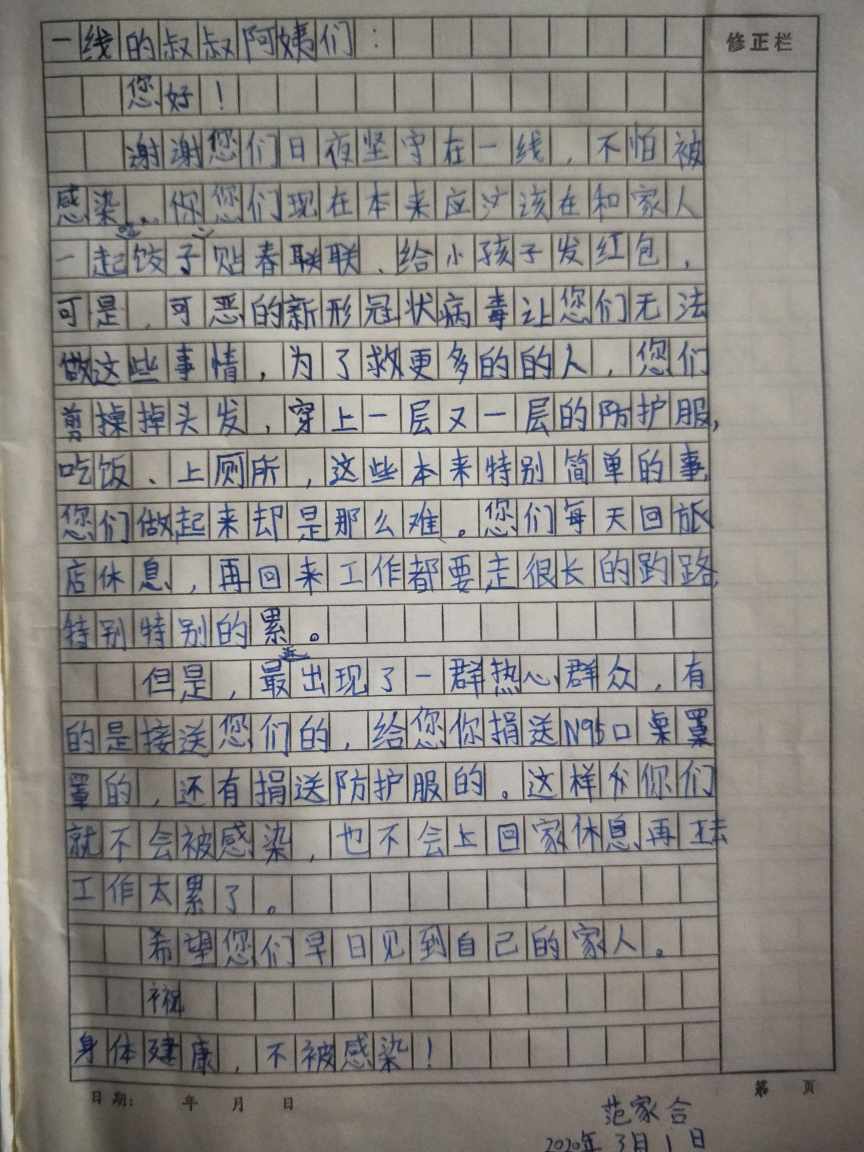 一线的叔叔阿姨们：
修正栏
您好！
谢谢您们日夜坚守在一线，不怕被
感染。你您们现在本来应该在和家人
一起饺子贴春联联、给小孩子发红包，
可是，可恶的新形冠状病毒让您们无法
做这些事情，为了救更多的的人，您们
剪掉头发，穿上一层又一层的防护服，
吃饭、上厕所，这些本来特别简单的事
您们做起来却是那么难。您们每天回旅
店休息，再回来工作都要走很长的路
特别特别的累。
但是，最近出现了一群热心群众，有
的是接送您们的，给您你捐送N95口罩
罩的，还有捐送防护服的。这样你们
就不会被感染，也不会上回家休息再去
工作太累了。
希望您们早日见到自己的家人。
祝
身体建康，不被感染！
日期： 年 月 日
第 页
范家合
2020年3月1日